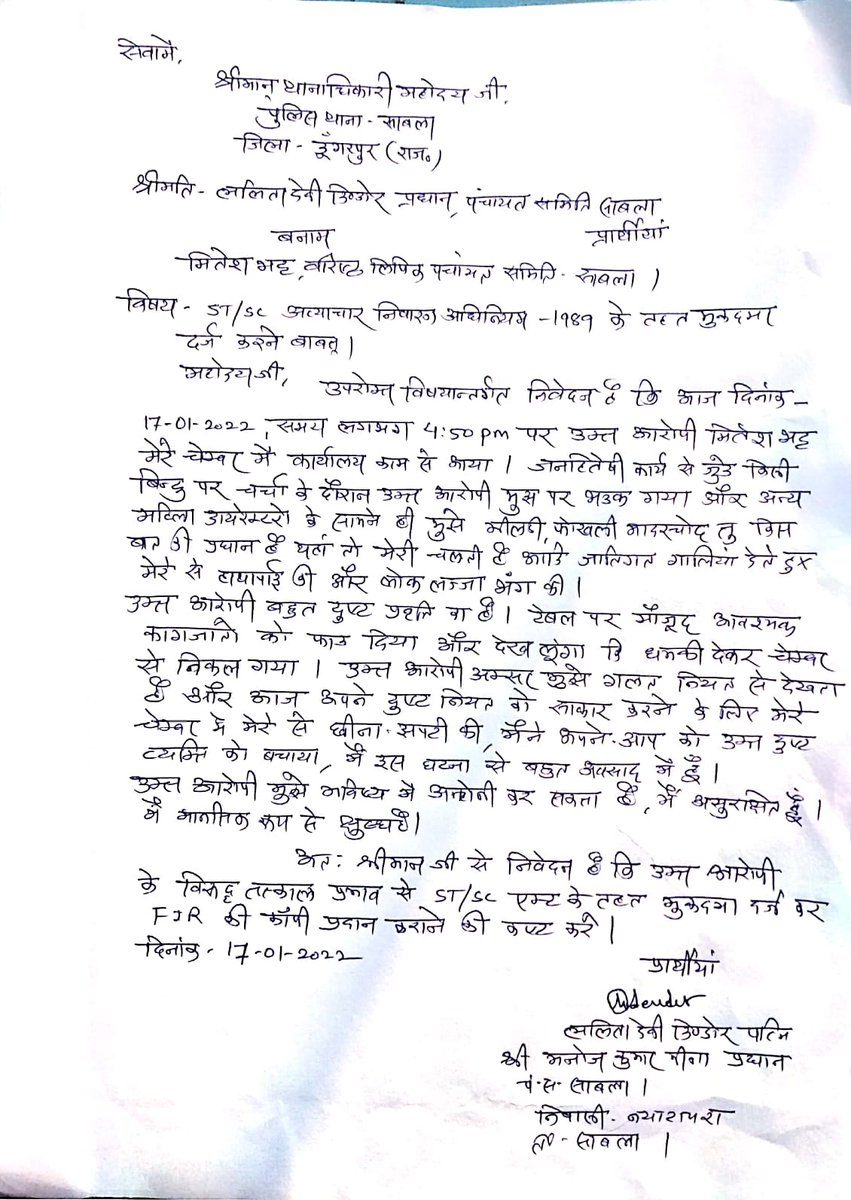 सेवामें,
श्रीमान् थानाधिकारी महोदय जी,
पुलिस थाना - साबला
जिला - डूँगरपुर (राज॰)
श्रीमति - ललिता देवी डिण्डोर प्रधान, पंचायत समिति साबला
प्रार्थीयां
बनाम
मितेश भट्ट, वरिष्ठ लिपिक पंचायत समिति - साबला ।
विषय - ST/SC अत्याचार निवारण अधिनियम - 1989 के तहत मुकदमा
दर्ज करने बाबत् ।
महोदय जी,
उपरोक्त विषयान्तर्गत निवेदन है कि आज दिनांक -
17-01-2022, समय लगभग 4:50 pm पर उक्त आरोपी मितेश भट्ट
मेरे चेम्बर में कार्यालय काम से आया । जनहितेषी कार्य से जुडे किसी
बिन्दु पर चर्चा के दौरान उक्त आरोपी मुझ पर भडक गया और अन्य
महिला डायरेक्टरो के सामने ही मुझे भीलडी, मादरचोद तु किस
बात की प्रधान है यहाँ तो मेरी चलती है आदि जातिगत गालियां देते हुए
मेरे से हाथापाई की और लोक लज्जा भंग की ।
उक्त आरोपी बहुत दुष्ट प्रवृति का है । टेबल पर मौजूद आवश्यक
कागजातो को फाड दिया और देख लूंगा कि धमकी देकर चेम्बर
से निकल गया । उक्त आरोपी अक्सर मुझे गलत नियत से देखता
है और आज अपने दुष्ट नियत को साकार करने के लिए मेरे
चेम्बर मे मेरे से छीना-झपटी की, मैंने अपने-आप को उक्त दुष्ट
व्यक्ति को बचाया, मैं इस घटना से बहुत अवसाद में हूँ ।
उक्त आरोपी मुझे भविष्य में अनहोनी कर सकता है, मैं असुरक्षित हूँ ।
मैं मानसिक रूप से क्षुब्ध हूँ।
अतः श्रीमान जी से निवेदन है कि उक्त आरोपी
के विरुद्ध तत्काल प्रभाव से ST/SC एक्ट के तहत मुकदमा दर्ज कर
FIR की कॉपी प्रदान कराने की कष्ट करें ।
दिनांक - 17-01-2022
प्रार्थीयां
ललिता देवी डिण्डोर पत्नि
श्री मनोज कुमार मीना प्रधान
पं. स. साबला ।
निवासी - नयाटापरा
त॰ - साबला ।